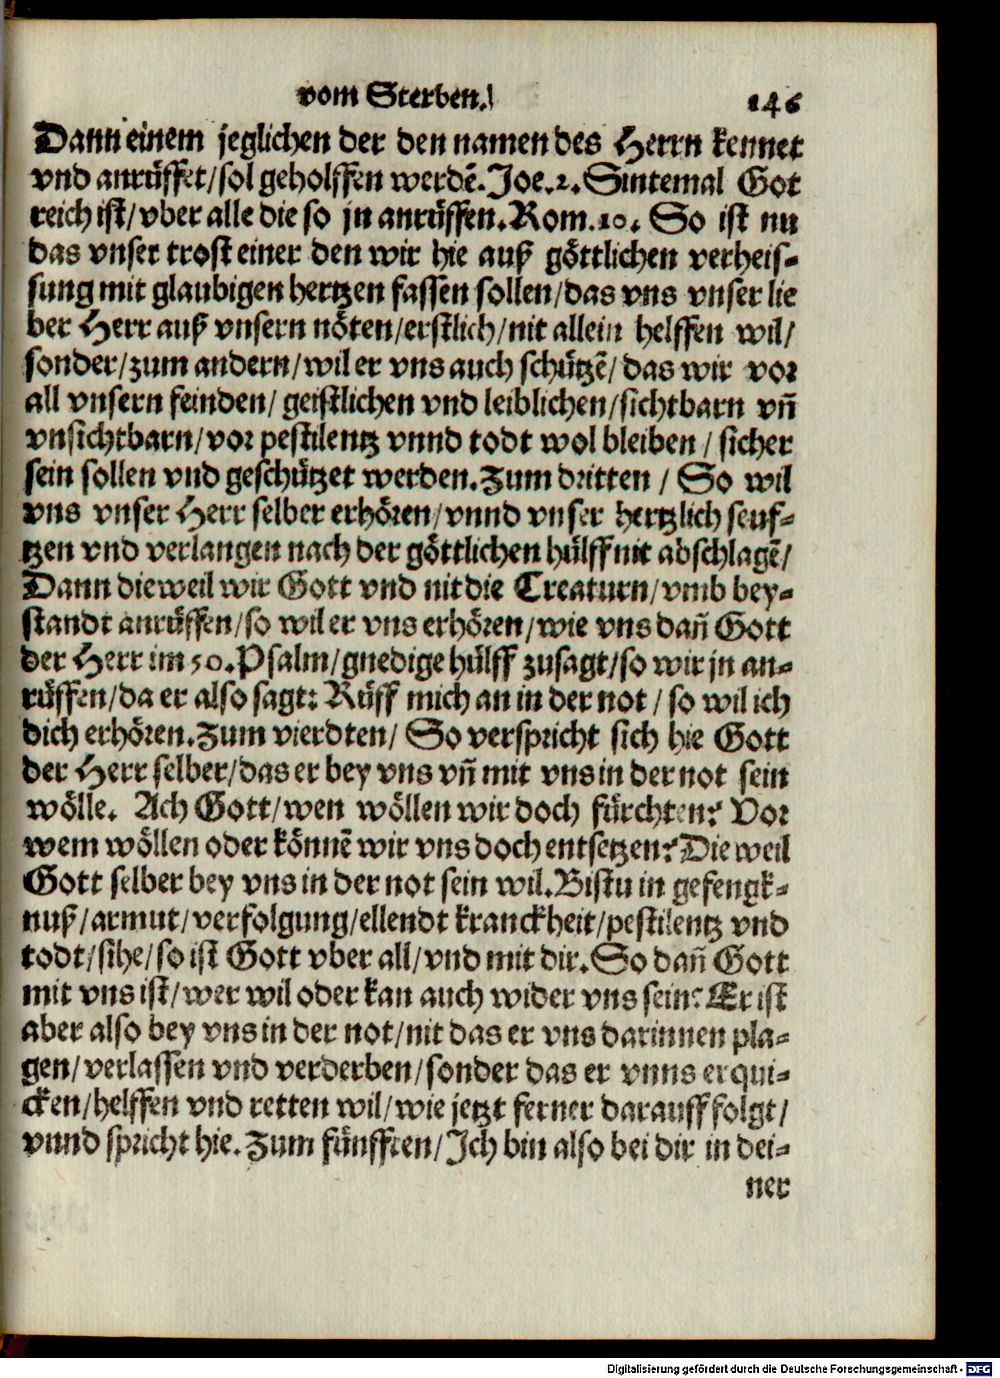 vom Sterben. 146
Dann einem jeglichen der den namen des Herrn kennet
vnd anrüffet/sol geholffen werdẽ. Joe.2. Sintemal Got
reich ist/vber alle die so jn anrüffen. Rom.10. So ist nu
das vnser trost einer den wir hie auß göttlichen verheis-
sung mit glaubigen hertzen fassen sollen/das vns vnser lie
ber Herr auß vnsern nöten/erstlich/nit allein helffen wil/
sonder/zum andern/wil er vns auch schützẽ/das wir vor
all vnsern feinden/geistlichen vnd leiblichen/sichtbarn vñ
vnsichtbarn/vor pestilentz vnnd todt wol bleiben/sicher
sein sollen vnd geschützet werden. Zum dritten/So wil
vns vnser Herr selber erhören/vnnd vnser hertzlich seuf-
tzen vnd verlangen nach der göttlichen hülff nit abschlagẽ/
Dann dieweil wir Gott vnd nit die Creaturn/vmb bey-
standt anrüffen/so wil er vns erhören/wie vns dañ Gott
der Herr im 50. Psalm/gnedige hülff zusagt/so wir jn an-
rüffen/da er also sagt: Rüff mich an in der not/so wil ich
dich erhören. Zum vierdten/So verspricht sich hie Gott
der Herr selber/das er bey vns vñ mit vns in der not sein
wölle. Ach Gott/wen wöllen wir doch fürchten? Vor
wem wöllen oder könnẽ wir vns doch entsetzen? Die weil
Gott selber bey vns in der not sein wil. Bistu in gefengk-
nuß/armut/verfolgung/ellendt kranckheit/pestilentz vnd
todt/sihe/so ist Gott vber all/vnd mit dir. So dañ Gott
mit vns ist/wer wil oder kan auch wider vns sein? Er ist
aber also bey vns in der not/nit das er vns darinnen pla-
gen/verlassen vnd verderben/sonder das er vnns erqui-
cken/helffen vnd retten wil/wie jetzt ferner darauff folgt/
vnnd spricht hie. Zum fünfften/Ich bin also bei dir in dei-
ner
Digitalisierung gefördert durch die Deutsche Forschungsgemeinschaft - DFG